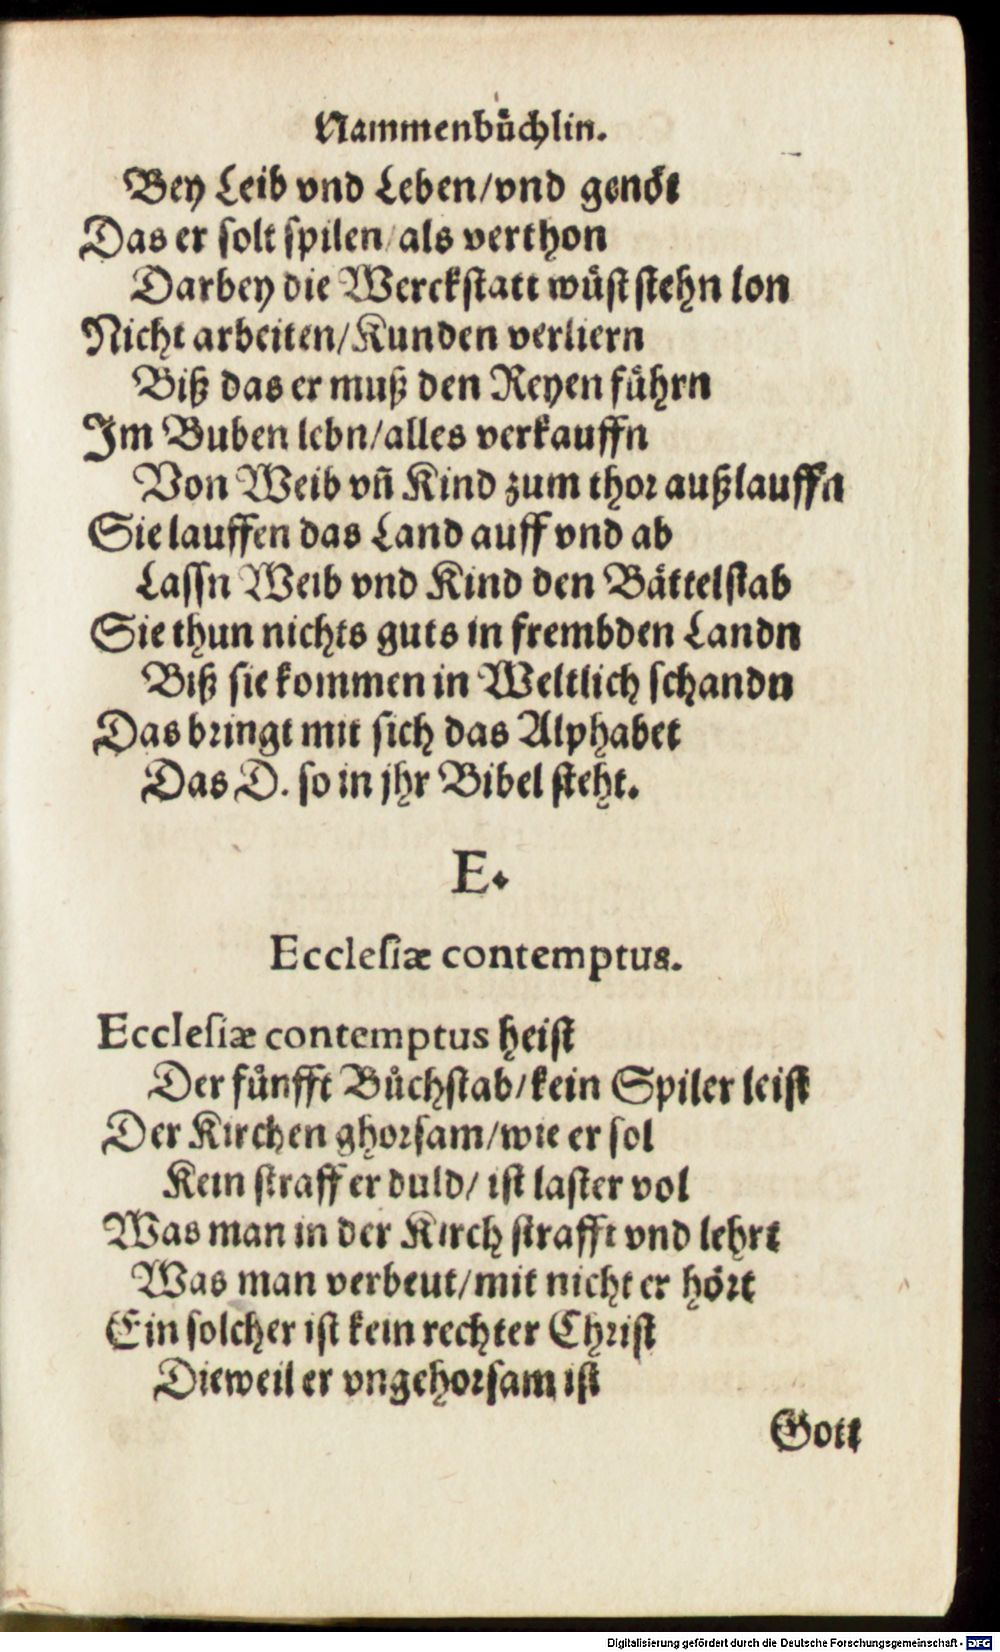 Nammenbuͤchlin.
Bey Leib vnd Leben/vnd genoͤt
Das er solt spilen/als verthon
Darbey die Werckstatt wuͤst stehn lon
Nicht arbeiten/Kunden verliern
Biß das er muß den Reyen fuͤhrn
Im Buben lebn/alles verkauffn
Von Weib vñ Kind zum thor außlauffn
Sie lauffen das Land auff vnd ab
Lassn Weib vnd Kind den Baͤttelstab
Sie thun nichts guts in frembden Landn
Biß sie kommen in Weltlich schandn
Das bringt mit sich das Alphabet
Das D. so in jhr Bibel steht.
E.
Ecclesiæ contemptus.
Ecclesiæ contemptus heist
Der fuͤnfft Buͤchstab/kein Spiler leist
Der Kirchen ghorsam/wie er sol
Kein straff er duld/ ist laster vol
Was man in der Kirch strafft vnd lehrt
Was man verbeut/mit nicht er hoͤrt
Ein solcher ist kein rechter Christ
Dieweil er vngehorsam ist
Gott
Digitalisierung gefördert durch die Deutsche Forschungsgemeinschaft - DFG